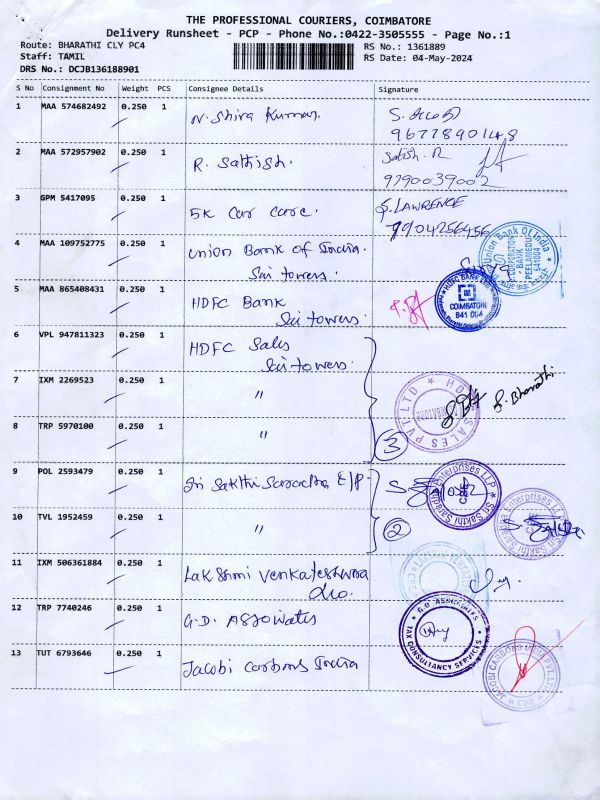 THE PROFESSIONAL COURIERS, COIMBATORE
Delivery Runsheet - PCP - Phone No.:0422-3505555 - Page No.:1
Route: BHARATHI CLY PC4
RS No.: 1361889
Staff: TAMIL
RS Date: 04-May-2024
DRS No.: DCJB136188901
S No Consignment No Weight PCS Consignee Details Signature
1 MAA 574682492 0.250 1 N. Shiva Kumar.
9677890148
2 MAA 572957902 0.250 1 R. Sathish. Satish. R
9790039002
3 GPM 5417095 0.250 1 5K Car care. S. LAWRENCE
7904256456
4 MAA 109752775 0.250 1 Union Bank of India.
Sai towers.
Union Bank Of India
CORPORATION BANK
PEELAMEDU
5 MAA 865408431 0.250 1 HDFC Bank
Sai towers.
HDFC BANK
COIMBATORE
641 004
6 VPL 947811323 0.250 1 HDFC Sales
Sai towers.
7 IXM 2269523 0.250 1 "
S. Bharathi
8 TRP 5970100 0.250 1 "
3
HD SALES PVT LTD
9 POL 2593479 0.250 1 Sri Sakthi Saradha E/P.
Sri Sakthi Saradha Enterprises LLP
10 TVL 1952459 0.250 1 "
2
11 IXM 506361884 0.250 1 Lakshmi Venkateshwara
12 TRP 7740246 0.250 1 G.D. Associates
G.D. ASSOCIATES
TAX CONSULTANCY SERVICES
13 TUT 6793646 0.250 1 Jacobi Carbons India
JACOBI CARBONS INDIA PVT.LTD
CBE